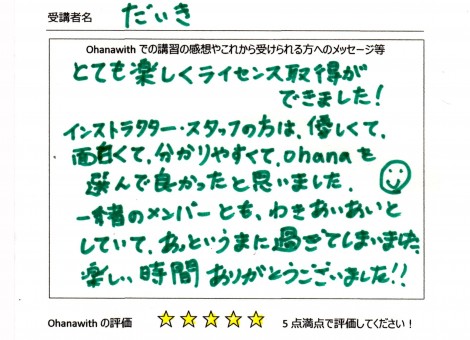 受講者名 だいき
Ohanawith での講習の感想やこれから受けられる方へのメッセージ等
とても楽しくライセンス取得が
できました!
インストラクター・スタッフの方は、優しくて、
面白くて、分かりやすくて、ohanaを
選んで良かったと思いました。
一緒のメンバーとも、わきあいあいと
していて、あっというまに過ぎてしまいました。
楽しい時間ありがとうございました!!
Ohanawith の評価 ☆☆☆☆☆ 5 点満点で評価してください!